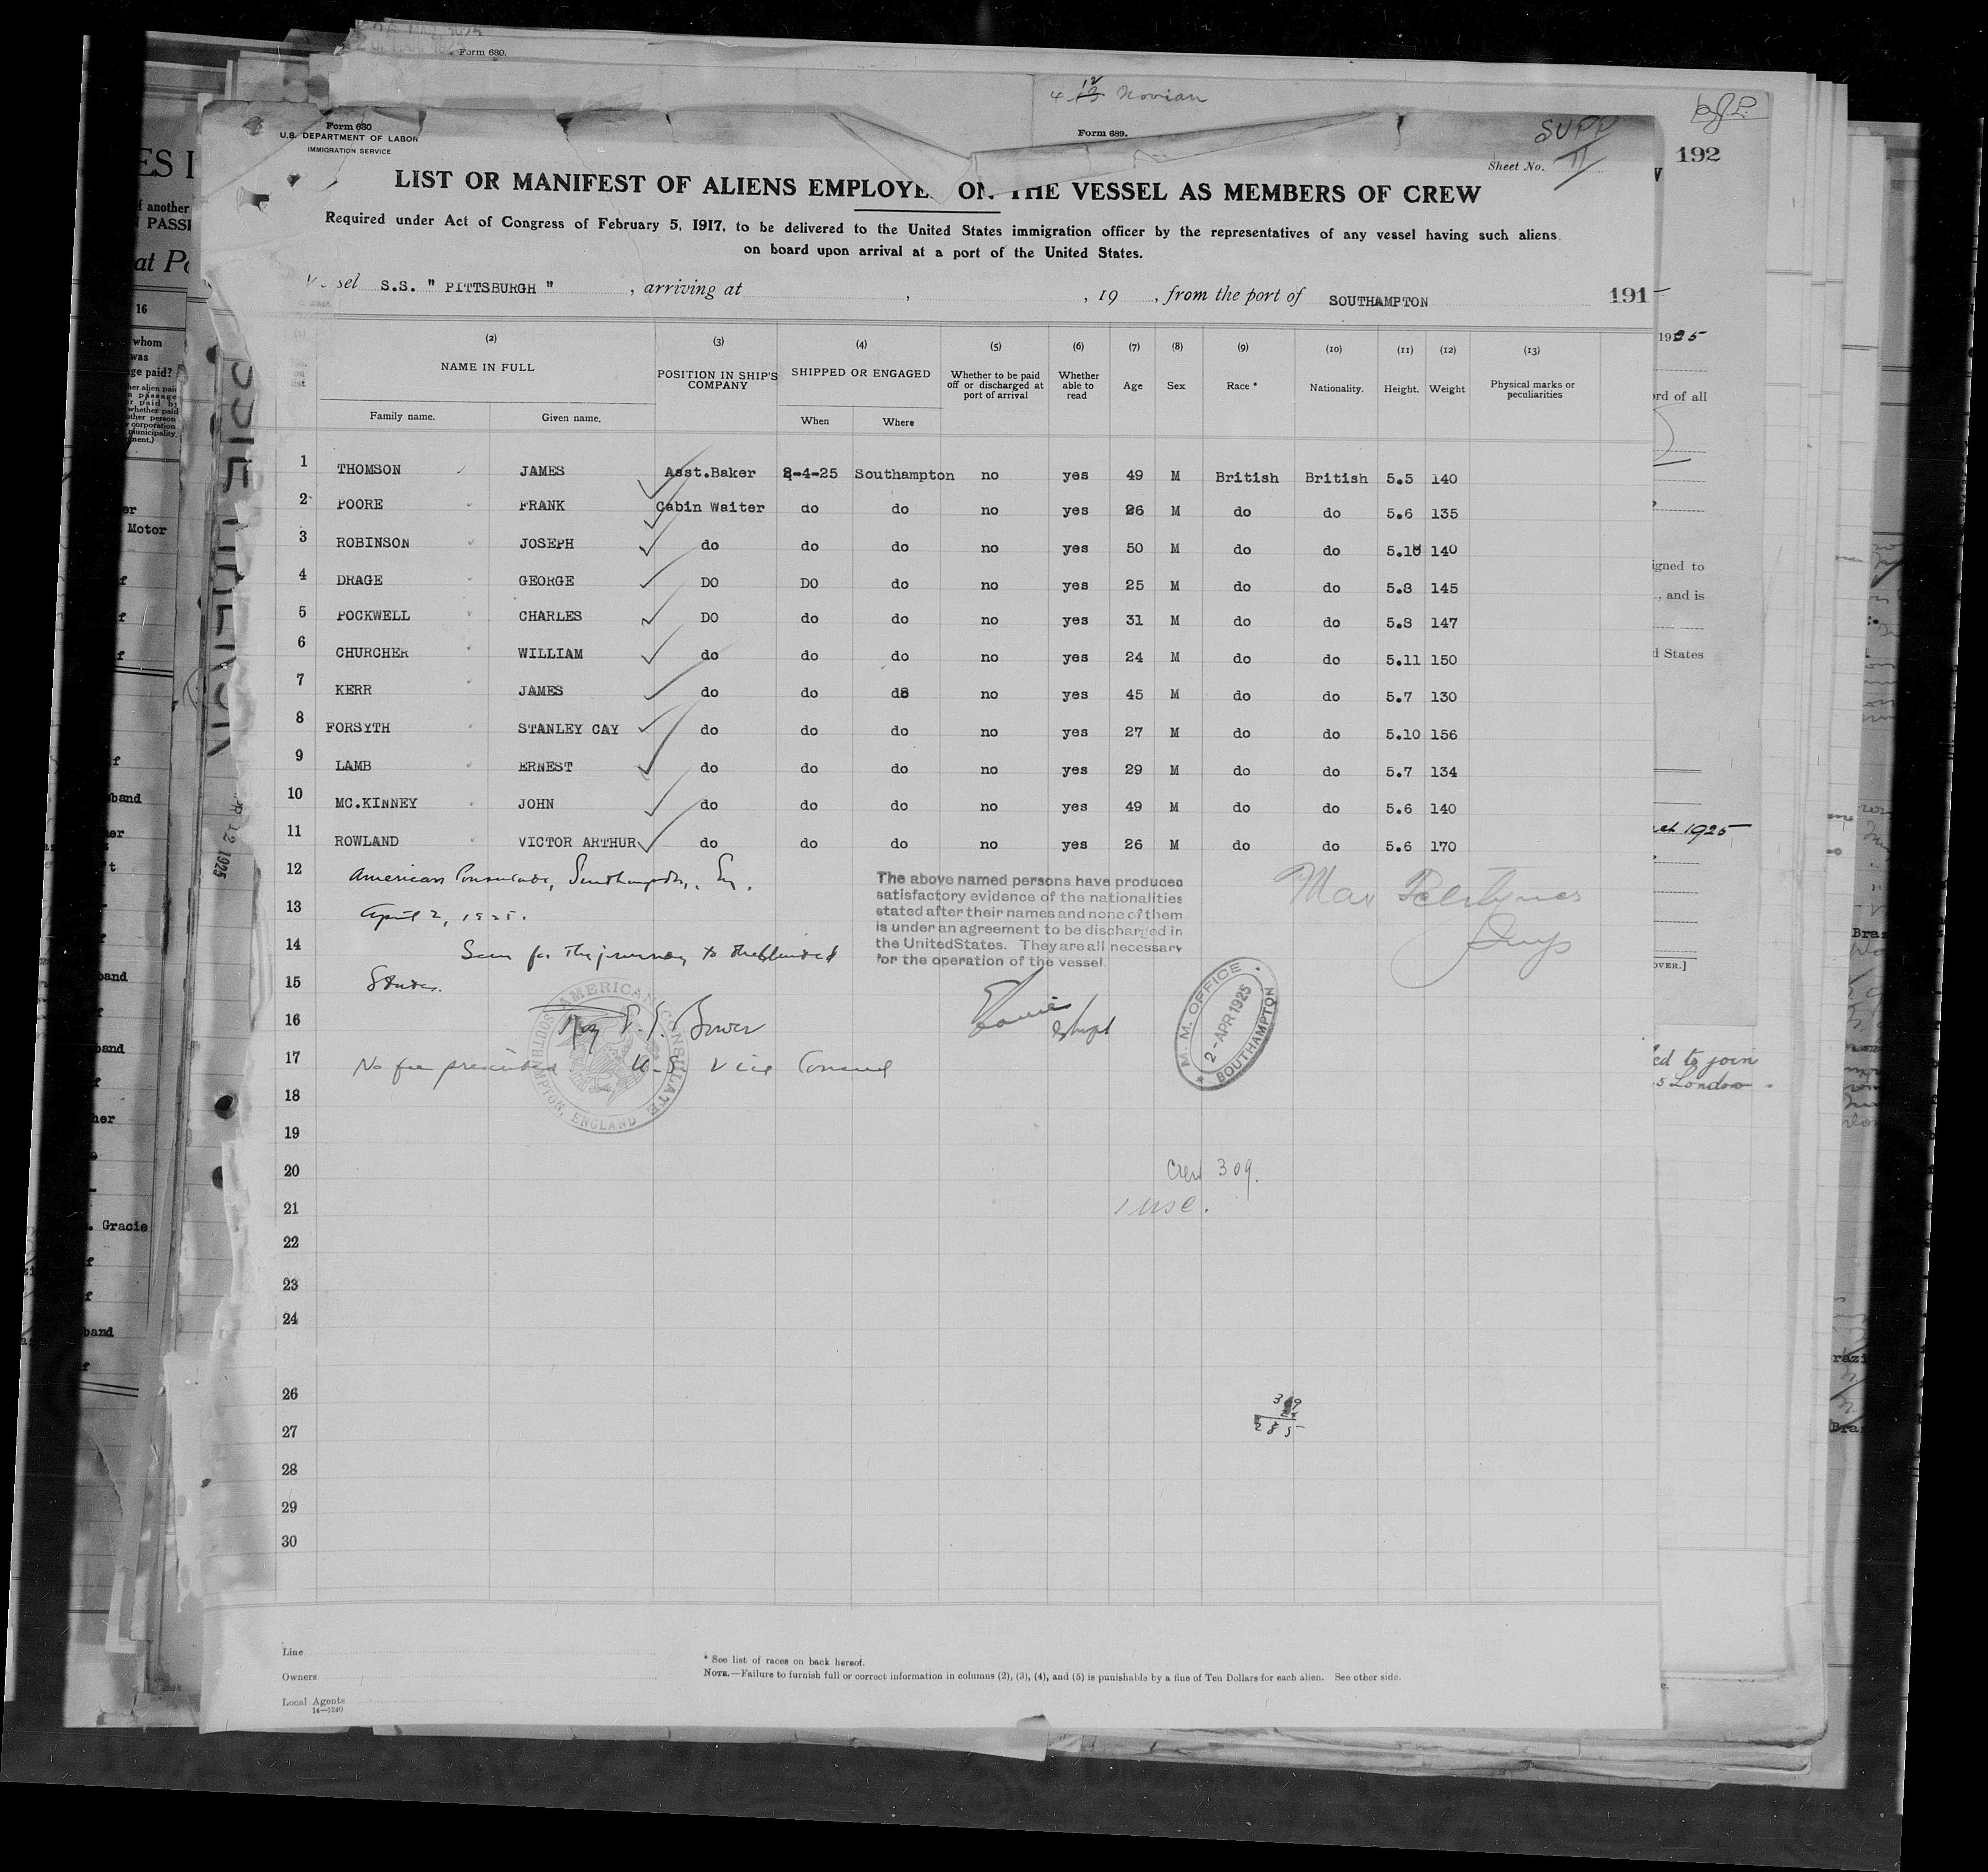 Form 680.
4 12 Novian
Form 689.
Form 680
U.S. DEPARTMENT OF LABOR
IMMIGRATION SERVICE
SUPP
Sheet No. II
192
LIST OR MANIFEST OF ALIENS EMPLOYE ON THE VESSEL AS MEMBERS OF CREW
Required under Act of Congress of February 5, 1917, to be delivered to the United States immigration officer by the representatives of any vessel having such aliens
on board upon arrival at a port of the United States.
sel S.S. " PITTSBURGH ", arriving at , , 19 , from the port of SOUTHAMPTON 191
(2) (3) (4) (5) (6) (7) (8) (9) (10) (11) (12) (13)
NAME IN FULL POSITION IN SHIP'S COMPANY SHIPPED OR ENGAGED Whether to be paid off or discharged at port of arrival Whether able to read Age Sex Race * Nationality. Height. Weight Physical marks or peculiarities
Family name. Given name. When Where
1 THOMSON JAMES Asst.Baker 2-4-25 Southampton no yes 49 M British British 5.5 140
2 POORE FRANK Cabin Waiter do do no yes 26 M do do 5.6 135
3 ROBINSON JOSEPH do do do no yes 50 M do do 5.10 140
4 DRAGE GEORGE DO DO do no yes 25 M do do 5.8 145
5 POCKWELL CHARLES DO do do no yes 31 M do do 5.8 147
6 CHURCHER WILLIAM do do do no yes 24 M do do 5.11 150
7 KERR JAMES do do do no yes 45 M do do 5.7 130
8 FORSYTH STANLEY CAY do do do no yes 27 M do do 5.10 156
9 LAMB ERNEST do do do no yes 29 M do do 5.7 134
10 MC.KINNEY JOHN do do do no yes 49 M do do 5.6 140
11 ROWLAND VICTOR ARTHUR do do do no yes 26 M do do 5.6 170
12 American Consulate, Southampton, Eng.
13 April 2, 1925.
14 Seen for the journey to the United
15 States.
The above named persons have produced
satisfactory evidence of the nationalities
stated after their names and none of them
is under an agreement to be discharged in
the United States. They are all necessary
for the operation of the vessel.
16 Roy Bower
17 No fee prescribed U.S. Vice Consul
AMERICAN CONSULATE
SOUTHAMPTON, ENGLAND
M. M. OFFICE
2-APR 1925
SOUTHAMPTON
18
19
20 Crew 309.
21
22
23
24
26
309
24
285
27
28
29
30
Line
Owners
Local Agents
14—1240
* See list of races on back hereof.
NOTE.—Failure to furnish full or correct information in columns (2), (3), (4), and (5) is punishable by a fine of Ten Dollars for each alien. See other side.
1925
ord of all
igned to
, and is
d States
1925
OVER.]
ed to join
5 London
ES I
f another
PASS
at Po
16
whom
was
ge paid?
Motor
band
. Gracie
band
12 1925